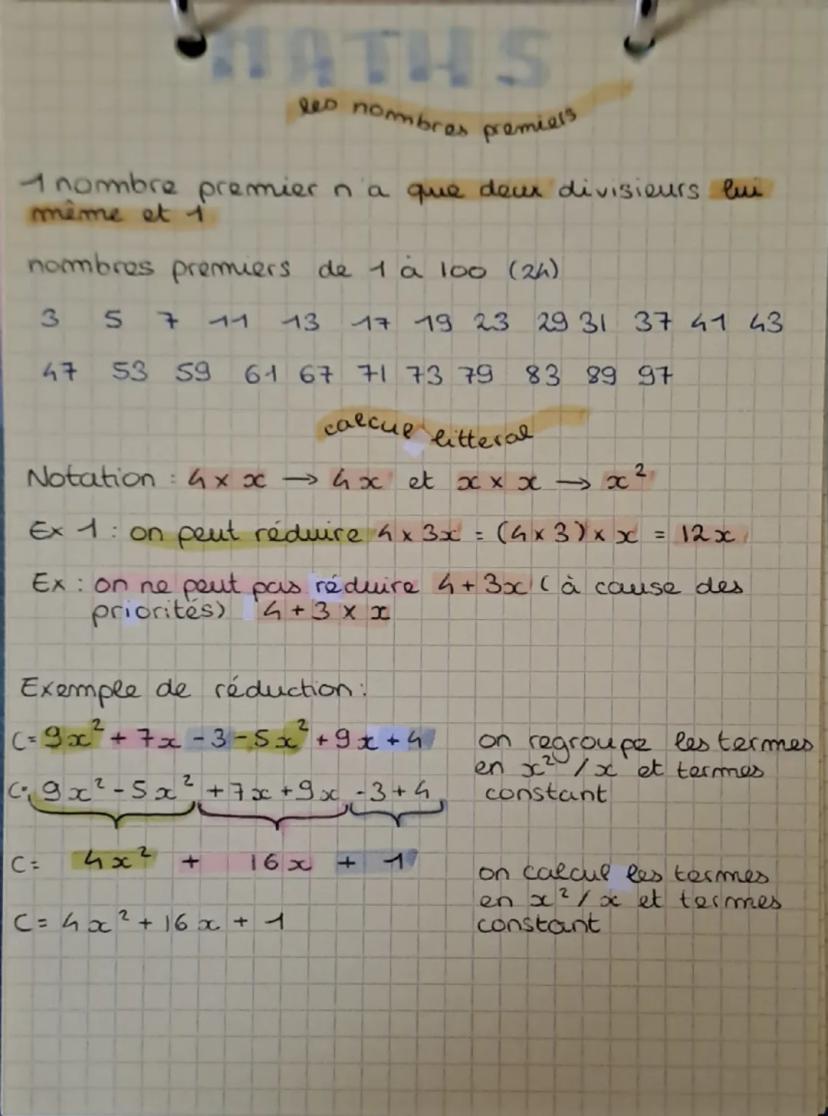 MATHS
les nombres premiers
1 nombre premier n'a que deux divisieurs lui
même et 1
nombres premiers de 1 à 100 (24)
3 5 7 11 13 17 19 23 29 31 37 41 43
47 53 59 61 67 71 73 79 83 89 97
calcul litteral
Notation : 4 × x → 4x et x × x → x²
Ex 1 : on peut réduire 4 × 3x = (4 × 3) × x = 12x
Ex : on ne peut pas réduire 4 + 3x ( à cause des
priorités) 4 + 3 × x
Exemple de réduction :
C = 9x² + 7x - 3 - 5x² + 9x + 4 on regroupe les termes
en x² / x et termes
C = 9x² - 5x² + 7x + 9x - 3 + 4 constant
C = 4x² + 16x + 1 on calcul les termes
en x² / x et termes
C = 4x² + 16x + 1 constant